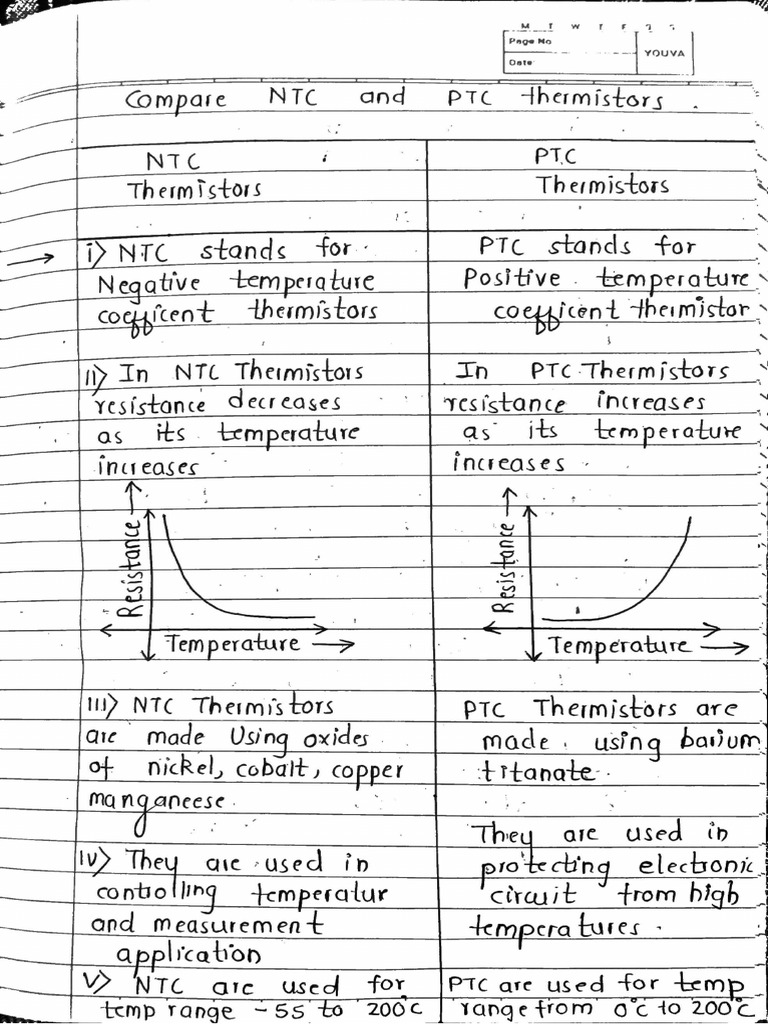 M T W T F S S
Page No
Date
YOUVA
Compare NTC and PTC thermistors.
NTC
Thermistors
i) NTC stands for
Negative temperature
coefficent thermistors
ii) In NTC Thermistors
resistance decreases
as its temperature
increases
Resistance →
Temperature →
iii) NTC Thermistors
are made Using oxides
of nickel, cobalt, copper
manganeese.
iv) They are used in
controlling temperatur
and measurement
application
v) NTC are used for
temp range -55 to 200°C
PTC
Thermistors
PTC stands for
Positive temperature
coefficent thermistor
In PTC Thermistors
resistance increases
as its temperature
increases.
Resistance →
Temperature →
PTC Thermistors are
made using barium
titanate.
They are used in
protecting electronic
circuit from high
temperatures.
PTC are used for temp
range from 0°C to 200°C